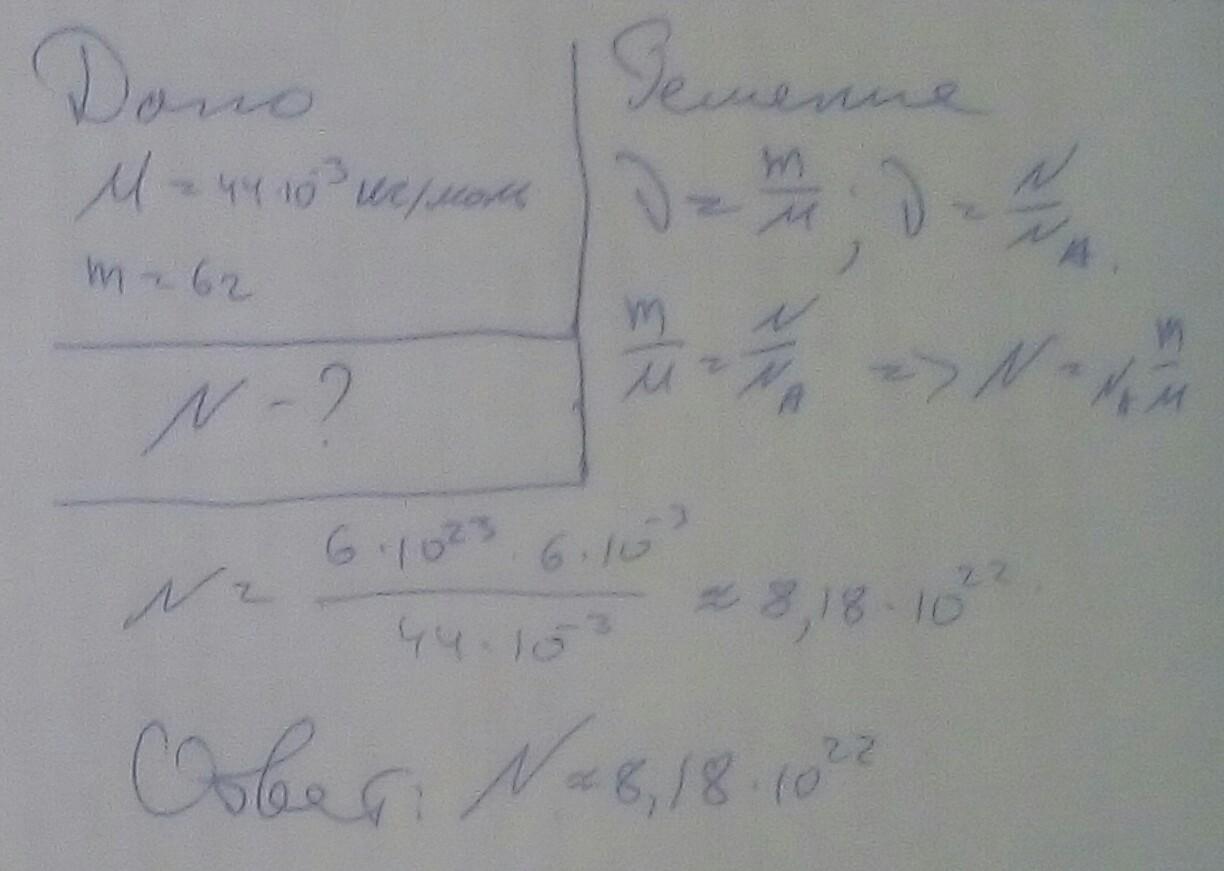 Дано
M = 44·10⁻³ кг/моль
m = 6г
N - ?
Решение
ν = m/M ; ν = N/N_A.
m/M = N/N_A => N = N_A m/M
N = 6·10²³·6·10⁻³/44·10⁻³ ≈ 8,18·10²²
Ответ: N ≈ 8,18·10²²